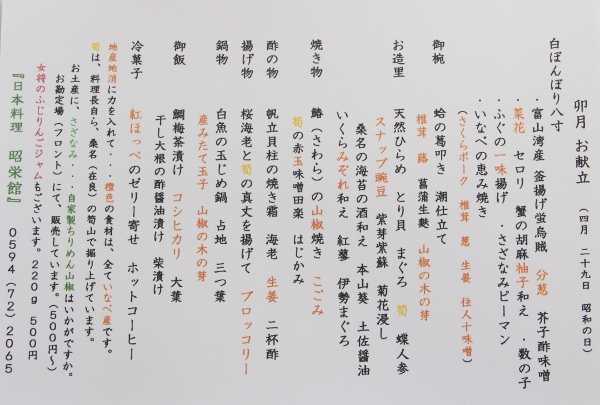 卯月 お献立 （四月 二十九日 昭和の日）
白ぼんぼり八寸
・富山湾産 釜揚げ蛍烏賊 分葱 芥子酢味噌
・菜花 セロリ 蟹の胡麻柚子和え ・数の子
・ふぐの一味揚げ ・さざなみピーマン
・いなべの恵み焼き
（さくらポーク 椎茸 葱 生姜 住人十味噌）
御椀 蛤の葛叩き 潮仕立て
椎茸 蕗 菖蒲生麩 山椒の木の芽
お造里 天然ひらめ とり貝 まぐろ 筍 蝶人参
スナップ豌豆 紫芽紫蘇 菊花浸し
桑名の海苔の酒和え 本山葵 土佐醤油
いくらみぞれ和え 紅蓼 伊勢まぐろ
焼き物 鰆（さわら）の山椒焼き こごみ
筍の赤玉味噌田楽 はじかみ
酢の物 帆立貝柱の焼き霜 海老 生姜 二杯酢
揚げ物 桜海老と筍の真丈を揚げて ブロッコリー
鍋物 白魚の玉じめ鍋 占地 三つ葉
産みたて玉子 山椒の木の芽
御飯 鯛梅茶漬け コシヒカリ 大葉
干し大根の酢醤油漬け 柴漬け
冷菓子 紅ほっぺのゼリー寄せ ホットコーヒー
地産地消に力を入れて・・・橙色の食材は、全ていなべ産です。
筍は、料理長自ら、桑名（在良）の筍山で掘り上げています。
お土産に、さざなみ・・・自家製ちりめん山椒はいかがですか。
お勘定場（フロント）にて、販売しています。（500円～）
女将のふじりんごジャムもございます。220g 500円
『日本料理 昭栄館』 0594（72）2065